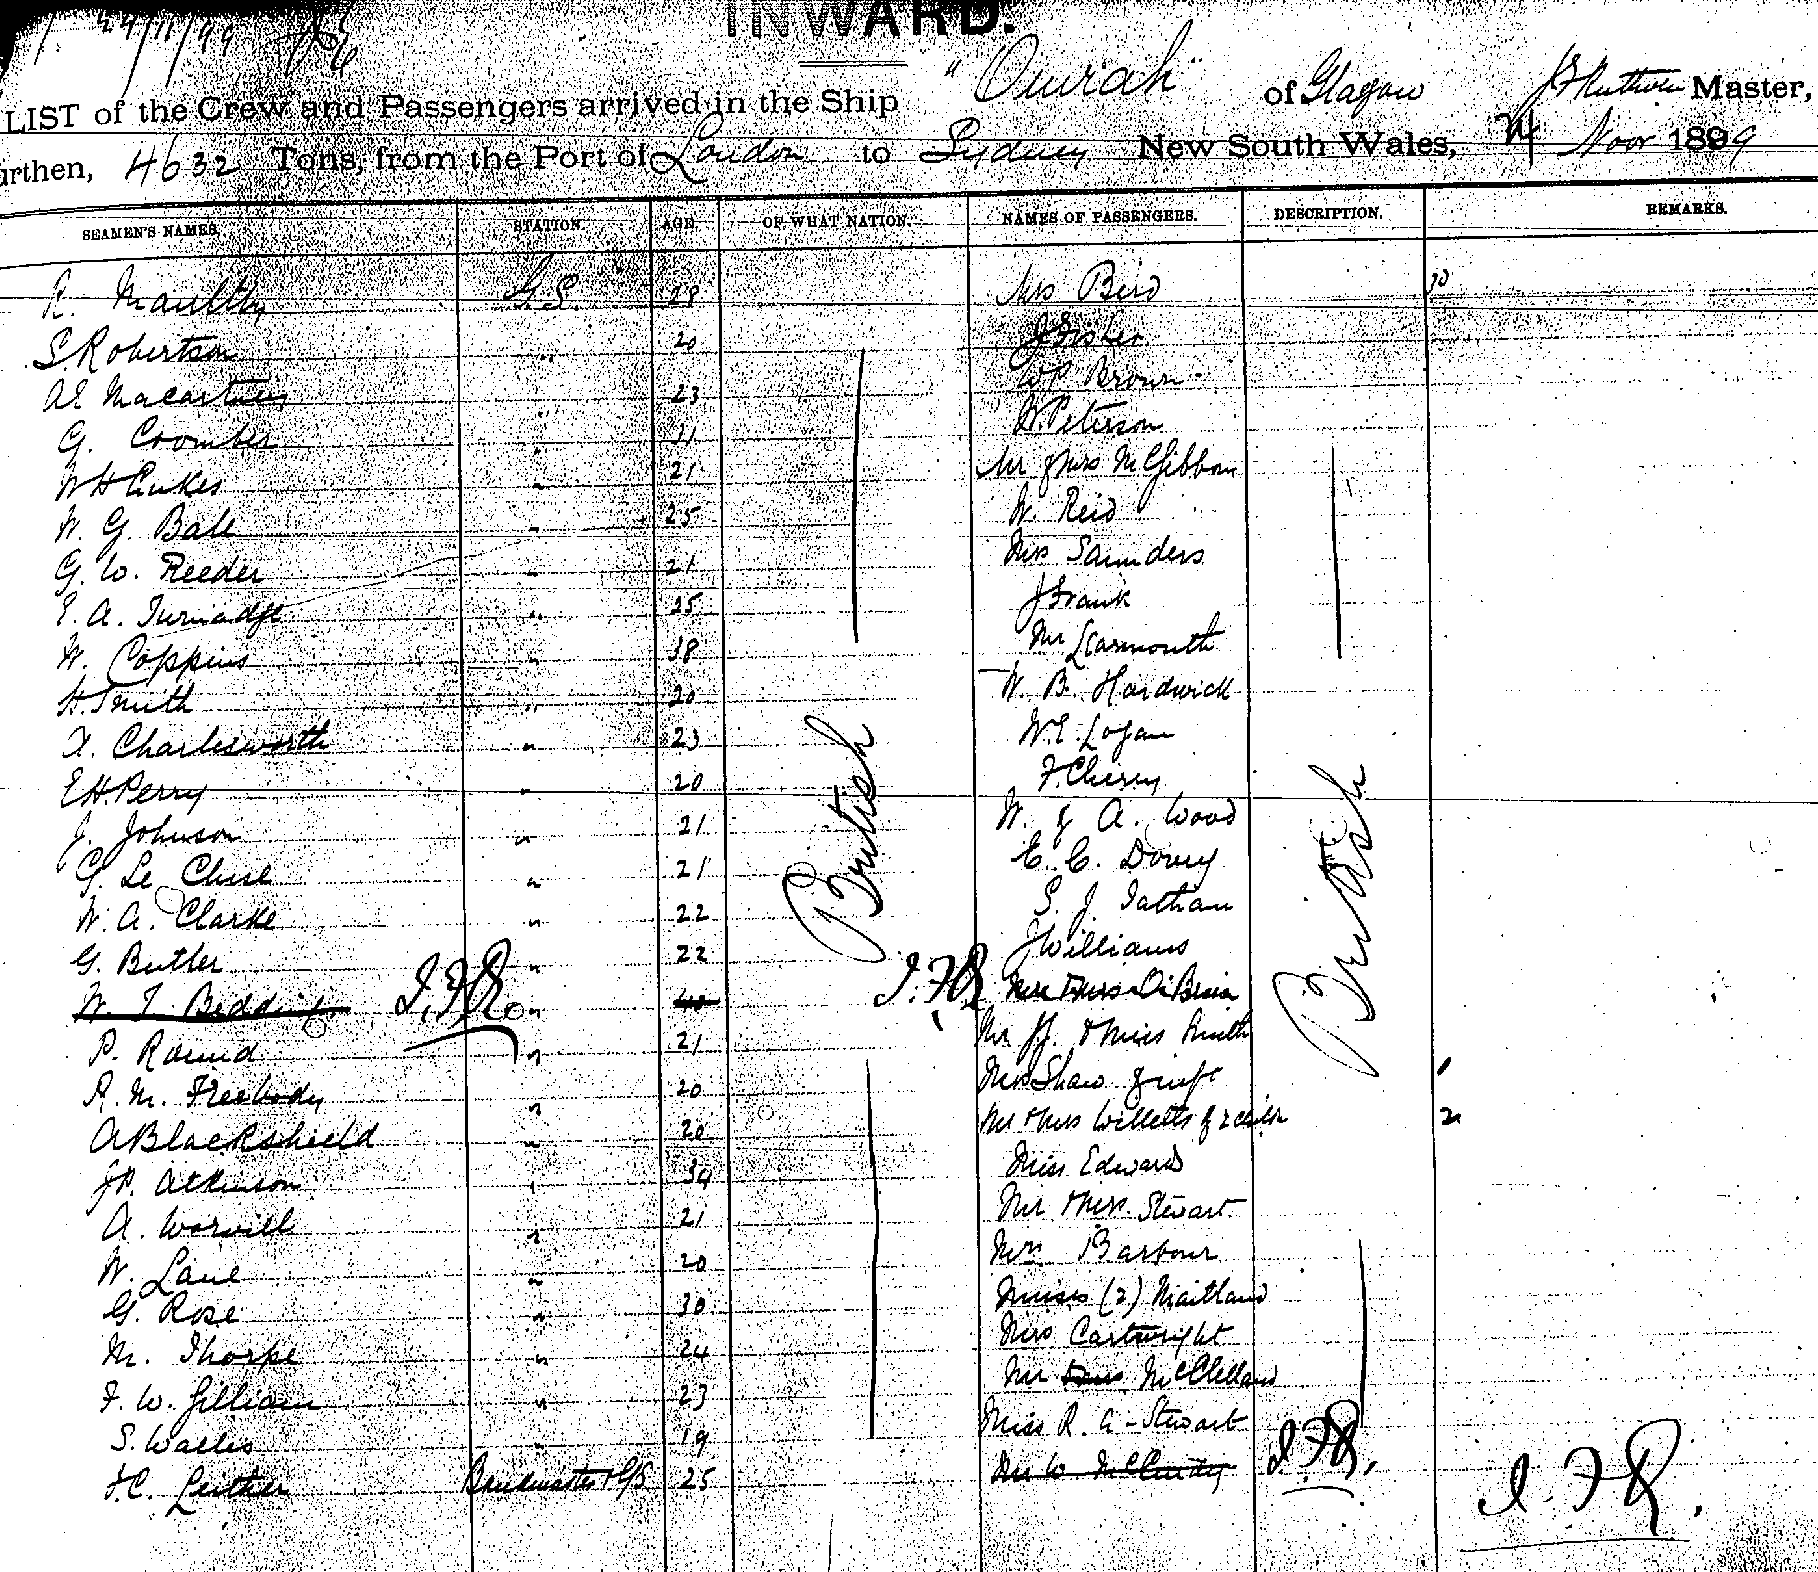 INWARD.
24/11/99
LIST of the Crew and Passengers arrived in the Ship "Omrah" of Glasgow Master,
urthen, 4632 Tons, from the Port of London to Sydney New South Wales, 24 Novr 1899
SEAMEN'S NAMES. STATION. AGE OF WHAT NATION. NAMES OF PASSENGERS. DESCRIPTION. REMARKS.
R. Maultby G.S. 28 Mrs Bird
S. Robertson " 20 J Fisher
A E Macartney " 23 W P Brown
G. Coomber " 21 W. Peterson
W H " 21 Mr & Mrs McGibbon
W. G. Bale " 25 W. Reid
G. W. Reeder " 21 Mrs Saunders
E. A. Turnadge " 25 J Frank
W. Coppins " 38 Mr Learmouth
H. Smith " 20 W. B. Hardwick
A. Charlesworth " 23 W. E. Logan
E H. Perry " 20 F. Cherry
J. Johnson " 21 W. & A. Wood
G. Le " 21 E. C. Dovey
W. A. Clarke " 22 S. J. Tatham
G. Butler " 22 J Williams
British British
W. T. Bedding J.F.R. " 40 J.F.R. Mr & Mrs O'Brien
P. Round " 21 Mr J.J. & Miss Smith
R. M. Freebody " 20 Mr Shaw & wife
A Blackshield " 20 Mr & Mrs Willetts & 2 child 2
J P. Atkinson " 34 Miss Edwards
A. Worvill " 21 Mr & Mrs. Stewart
W. Lane " 20 Mrs Barbour
G. Rose " 30 Misses (2) Maitland
M. Thorpe " 24 Mrs Cartwright
F. W. Gilliam " 23 Mr & Mrs McClelland
S. Wallis " 19 Miss R. A. Stewart
F.C. Bandmaster & G/S 25 Mr W. McCurdy J.F.R. J.F.R.